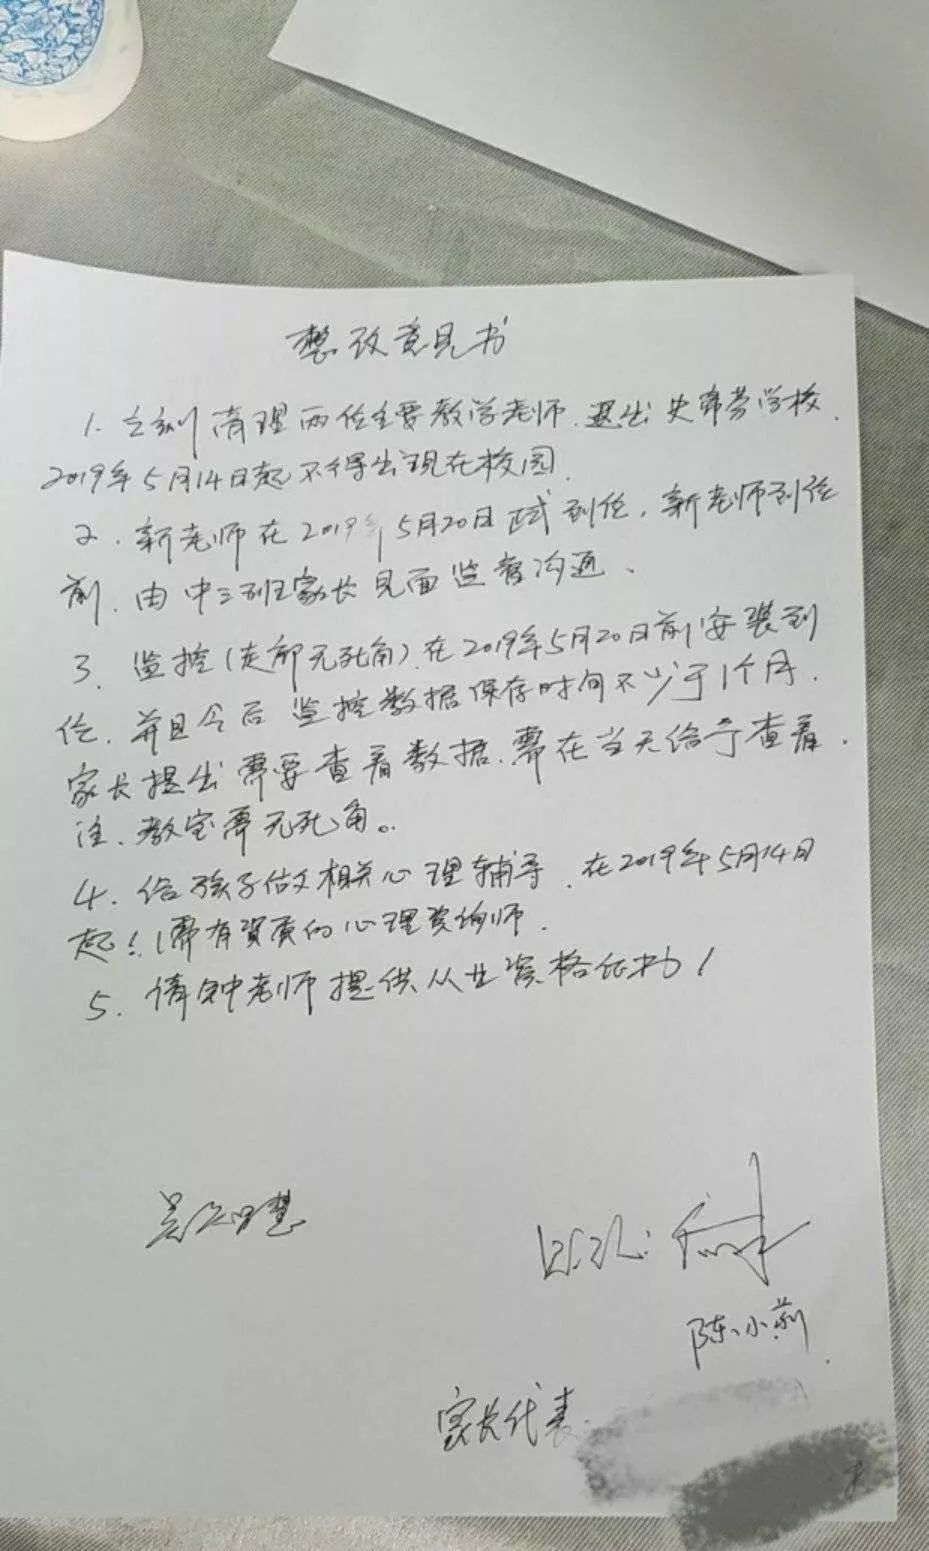 整改意见书
1. 立刻清理两位主要教学老师.退出史蒂芬学校.
2019年5月14日起不得出现在校园.
2. 新老师在2019年5月20日正式到位,新老师到位
前.由中三班家长见面监督沟通、
3、监控(走廊无死角)在2019年5月20日前安装到
位.并且今后监控数据保存时间不少于1个月.
家长提出需要查看数据.需在当天给予查看.
注.教室要无死角。
4. 给孩子做相关心理辅导.在2019年5月14日
起!(需有資质的心理咨询师.
5. 请钟老师提供从业资格证书!
陈小莉
家长代表.